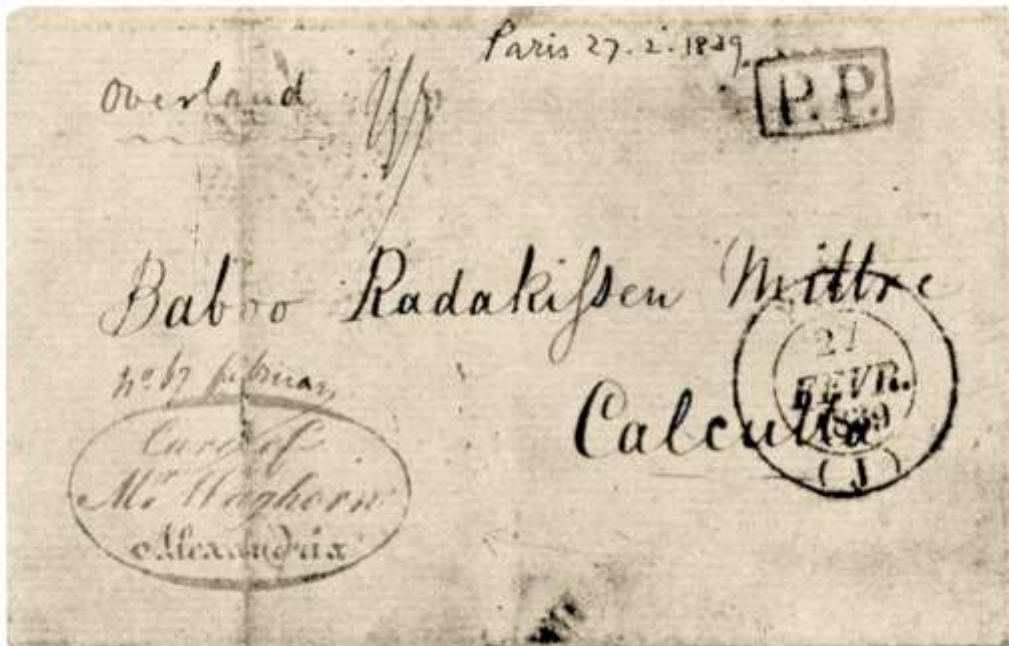 Paris 27.2.1839
Overland
P.P.
Baboo Radakiſsen Mittre
Calcutta
No. 67 februar
27
FEVR.
1839
(J)
Care of
Mr. Waghorn
Alexandria